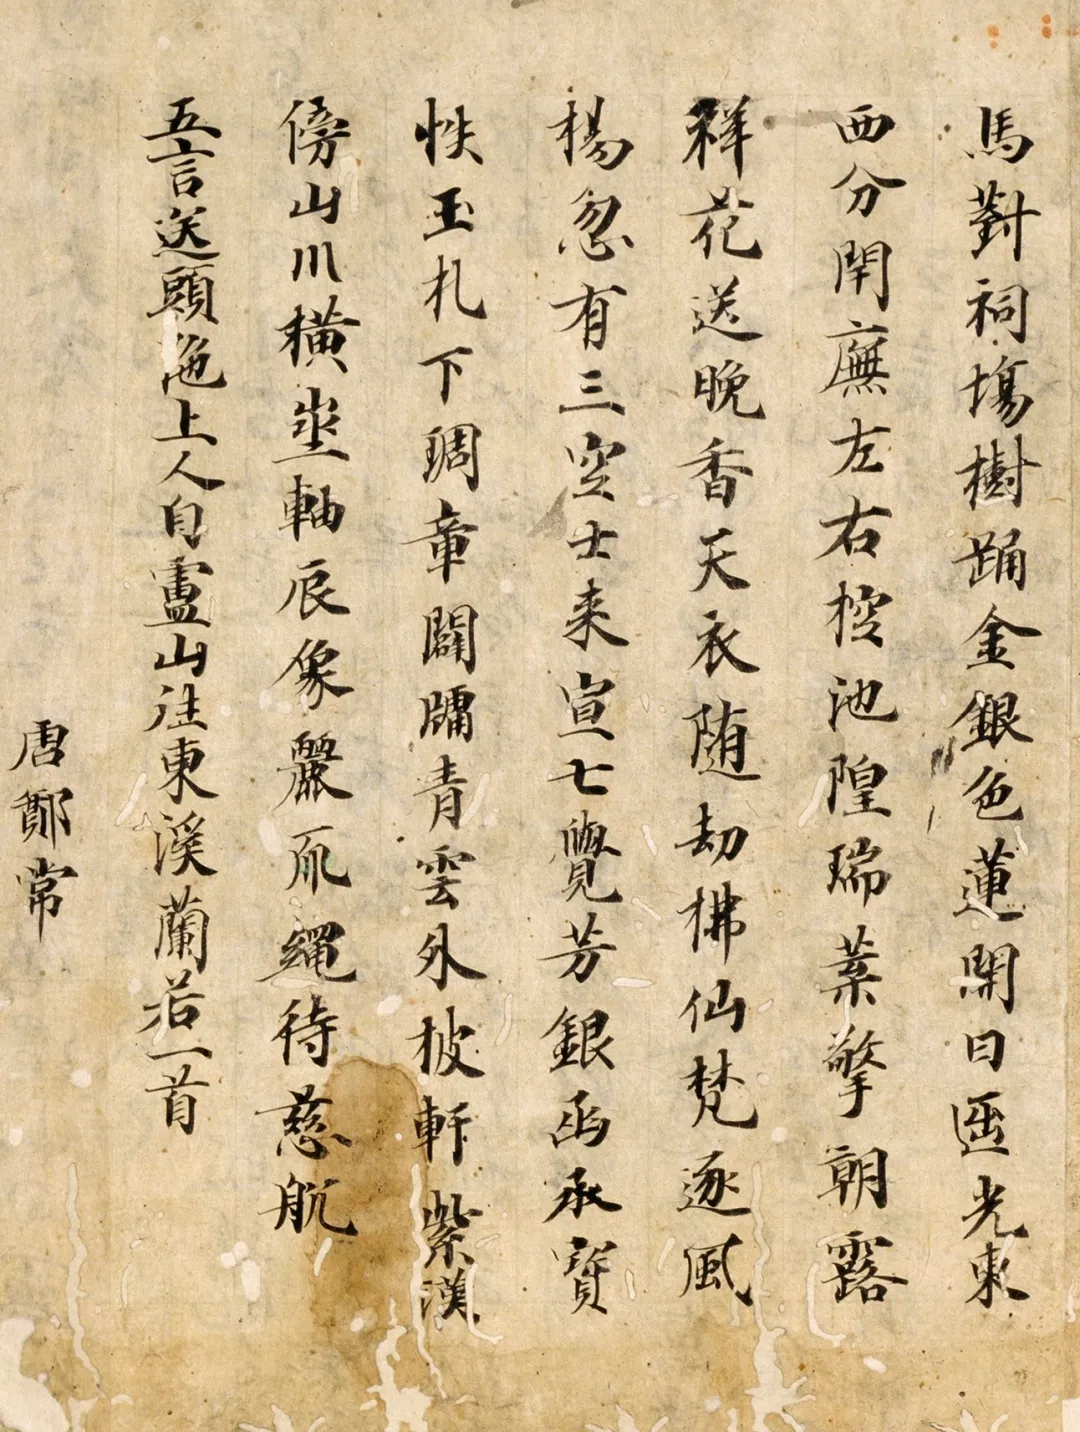 馬對祠塲樹踊金銀色蓮開日匝光東
西分閈廡左右控池隍瑞葉擎朝露
祥花送晚香天衣随劫拂仙梵逐風
楊忽有三空士来宣七覺芳銀函承寶
帙玉札下琱章闢牖青雲外披軒紫漢
傍山川横㘴軸辰象麗爪繩待慈航
五言送頭陁上人自廬山往東溪蘭若一首
唐鄭常